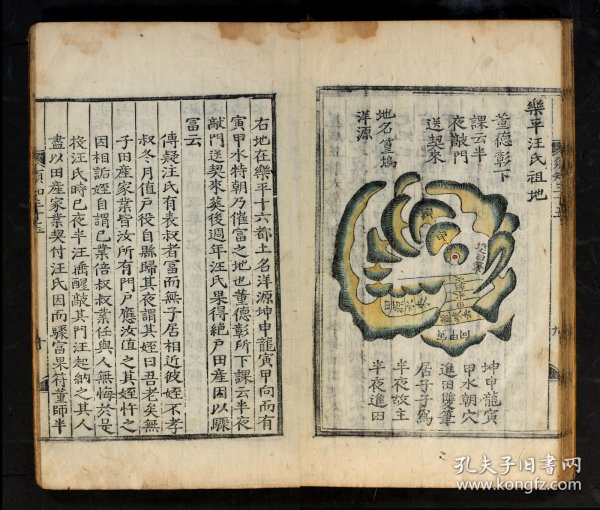 樂平汪氏祖地
董德彰下
課云半
夜敲門
送契來
地名
洋源
坤申龍寅
甲水朝穴
進田雙筆
居子子爲
半夜故主
半夜進田
右地在樂平十六都土名洋源坤申龍寅甲向而有
寅甲水特朝乃催富之地也董德彰所下課云半夜
敲門送契來葬後週年汪氏果得絕戶田産因以驟
富云
傳疑汪氏有表叔者富而無子居相近彼姪不孝
叔冬月值戶役自縣歸其夜謂其姪曰吾老矣無
子田産家業皆汝所有門戶應汝值之其姪忤之
因相詬姪自謂已業倍叔叔業任與人無悔於是
投汪氏時已夜半汪醒敲其門汪起納之其人
盡以田産家業契付汪氏因而驟富果符董師半
孔夫子旧书网
www.kongfz.com